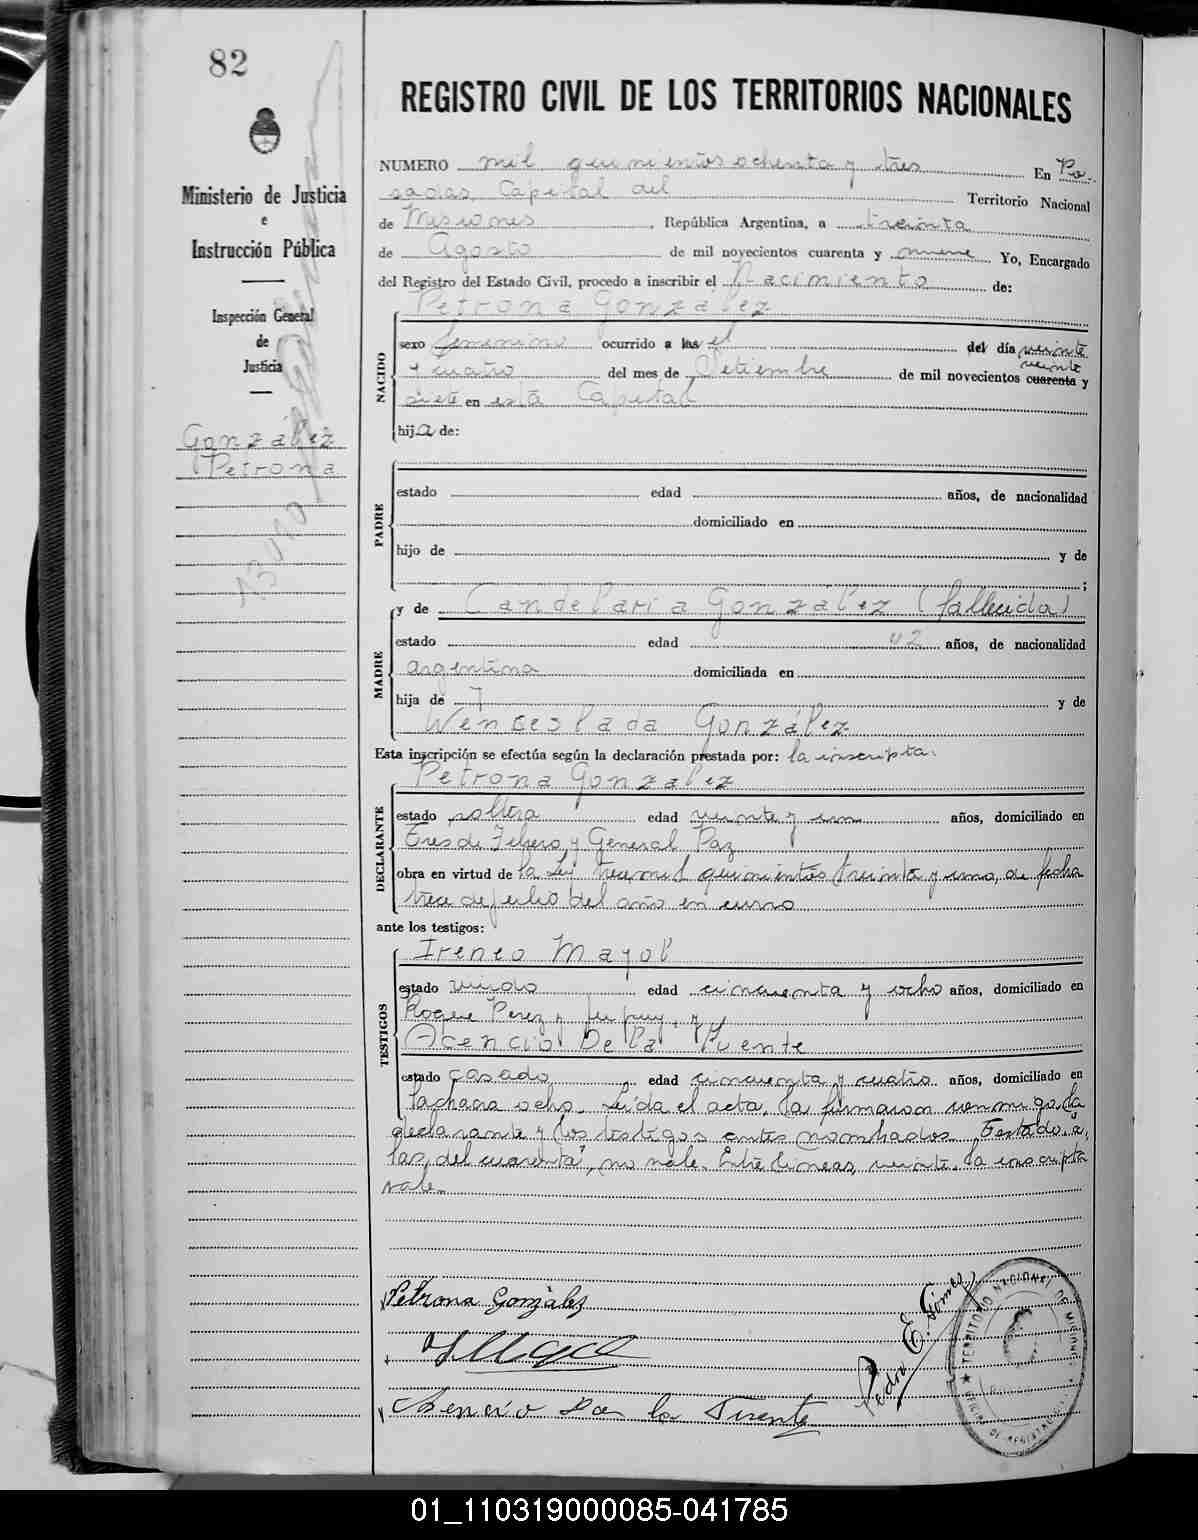 82
REGISTRO CIVIL DE LOS TERRITORIOS NACIONALES
Ministerio de Justicia
e
Instrucción Pública
Inspección General
de
Justicia
González
Petrona
NUMERO mil quinientos ochenta y tres En Po-
sadas, Capital del Territorio Nacional
de Misiones, República Argentina, a treinta
de Agosto de mil novecientos cuarenta y nueve Yo, Encargado
del Registro del Estado Civil, procedo a inscribir el Nacimiento de:
NACIDO
Petrona González
sexo femenino ocurrido a las el del día veinte
y cuatro del mes de Setiembre de mil novecientos cuarenta veinte y
siete en esta Capital
hija de:
PADRE
estado edad años, de nacionalidad
domiciliado en
hijo de y de
;
MADRE
y de Candelaria González (fallecida)
estado edad 42 años, de nacionalidad
argentina domiciliada en
hija de y de
Wenceslada González
Esta inscripción se efectúa según la declaración prestada por: la inscripta.
DECLARANTE
Petrona González
estado soltera edad veinte y un años, domiciliado en
Tres de Febrero y General Paz
obra en virtud de la Ley trece mil quinientos treinta y uno, de fecha
trece de julio del año en curso
ante los testigos:
TESTIGOS
Ireneo Mayol
estado viudo edad cincuenta y ocho años, domiciliado en
Roque Perez y Jujuy, y
Acencio De la Fuente
estado casado edad cincuenta y cuatro años, domiciliado en
la chacra ocho. Leída el acta, la firmaron conmigo, la
declarante y los testigos antes nombrados. Testado "a,
las, del cuarenta", no vale. Entre lineas, veinte, la inscripta
vale.
Petrona González
Asencio De la Fuente
Pedro E. Gómez
TERRITORIO NACIONAL DE MISIONES
01_110319000085-041785